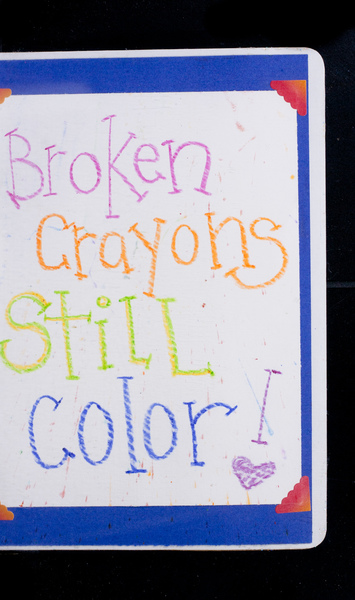 Broken
Crayons
Still
Color!